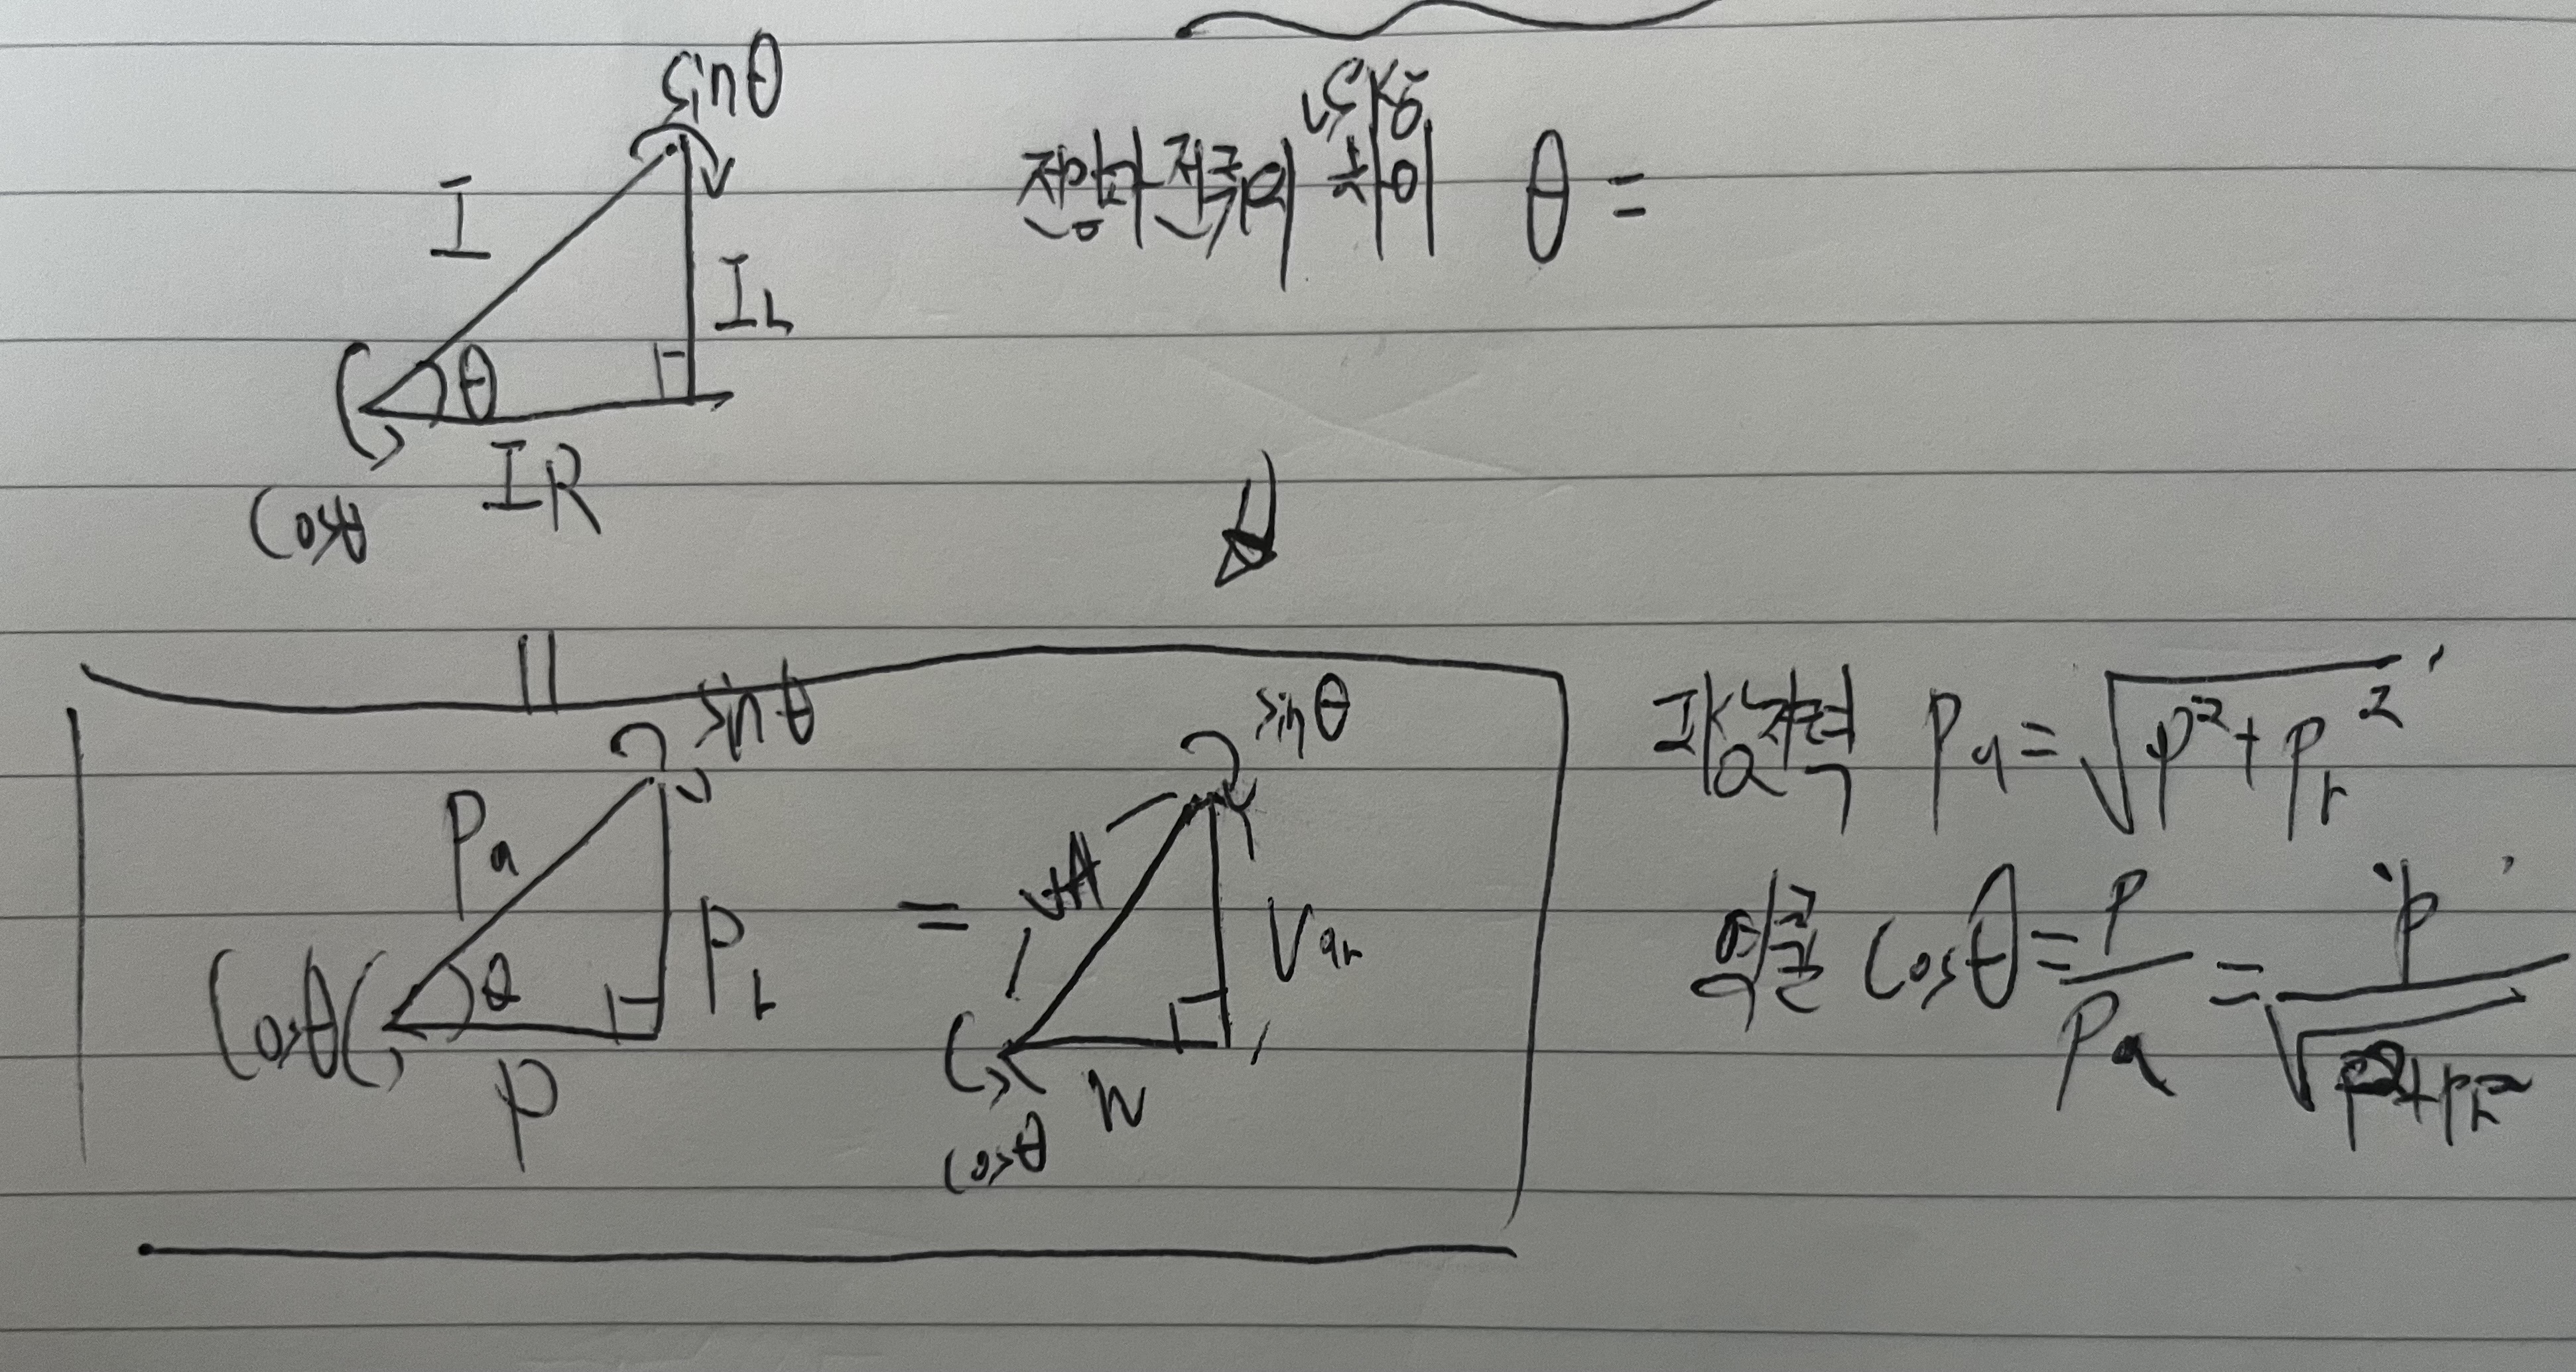 sinθ
I
I_L
θ
I_R
cosθ
위상
전압과 전류의 차이 θ =
sinθ
Pa
Pr
cosθ
θ
P
=
sinθ
VA
Var
W
cosθ
피상전력 Pa = √(P² + Pr²)
역률 cosθ = P/Pa = P/√(P² + Pr²)